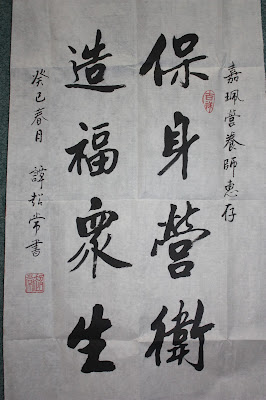 嘉珮營養師惠存
保身營衛
造福眾生
癸巳春月 譚超常書